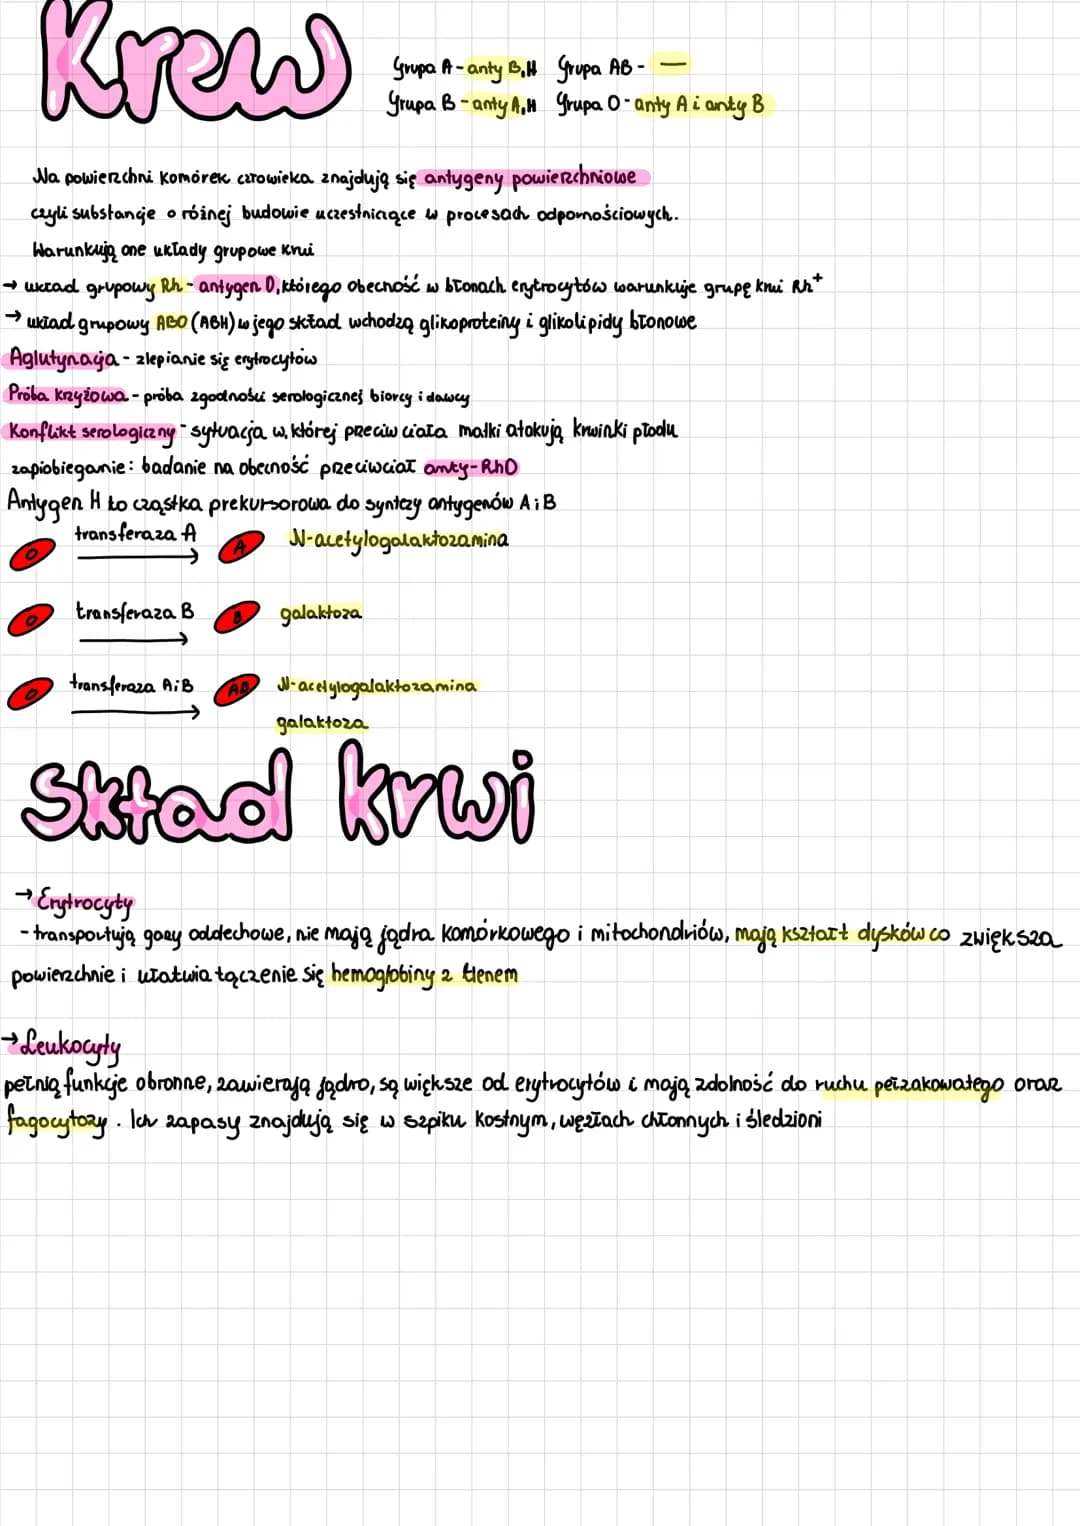 Krew
Grupa A - anty B,H Grupa AB - —
Grupa B - anty A,H Grupa O - anty A i anty B
Na powierzchni komórek człowieka znajdują się antygeny powierzchniowe
czyli substancje o różnej budowie uczestniczące w procesach odpornościowych.
Warunkują one układy grupowe krwi
→ układ grupowy Rh - antygen D, którego obecność w błonach erytrocytów warunkuje grupę krwi Rh+
→ układ grupowy ABO (ABH) w jego skład wchodzą glikoproteiny i glikolipidy błonowe
Aglutynacja - zlepianie się erytrocytów
Próba krzyżowa - próba zgodności serologicznej biorcy i dawcy
Konflikt serologiczny - sytuacja w, której przeciwciała matki atakują krwinki płodu
zapiobieganie: badanie na obecność przeciwciał anty-RhD
Antygen H to cząstka prekursorowa do syntezy antygenów A i B
O transferaza A → A N-acetylogalaktozamina
O transferaza B → B galaktoza
O transferaza A i B → AB N-acetylogalaktozamina
galaktoza
Skład krwi
→ Erytrocyty
- transportują gazy oddechowe, nie mają jądra komórkowego i mitochondriów, mają kształt dysków co zwiększa
powierzchnie i ułatwia łączenie się hemoglobiny z tlenem
→ Leukocyty
pełnią funkcje obronne, zawierają jądro, są większe od erytrocytów i mają zdolność do ruchu pełzakowatego oraz
fagocytozy. Ich zapasy znajdują się w szpiku kostnym, węzłach chłonnych i śledzioni